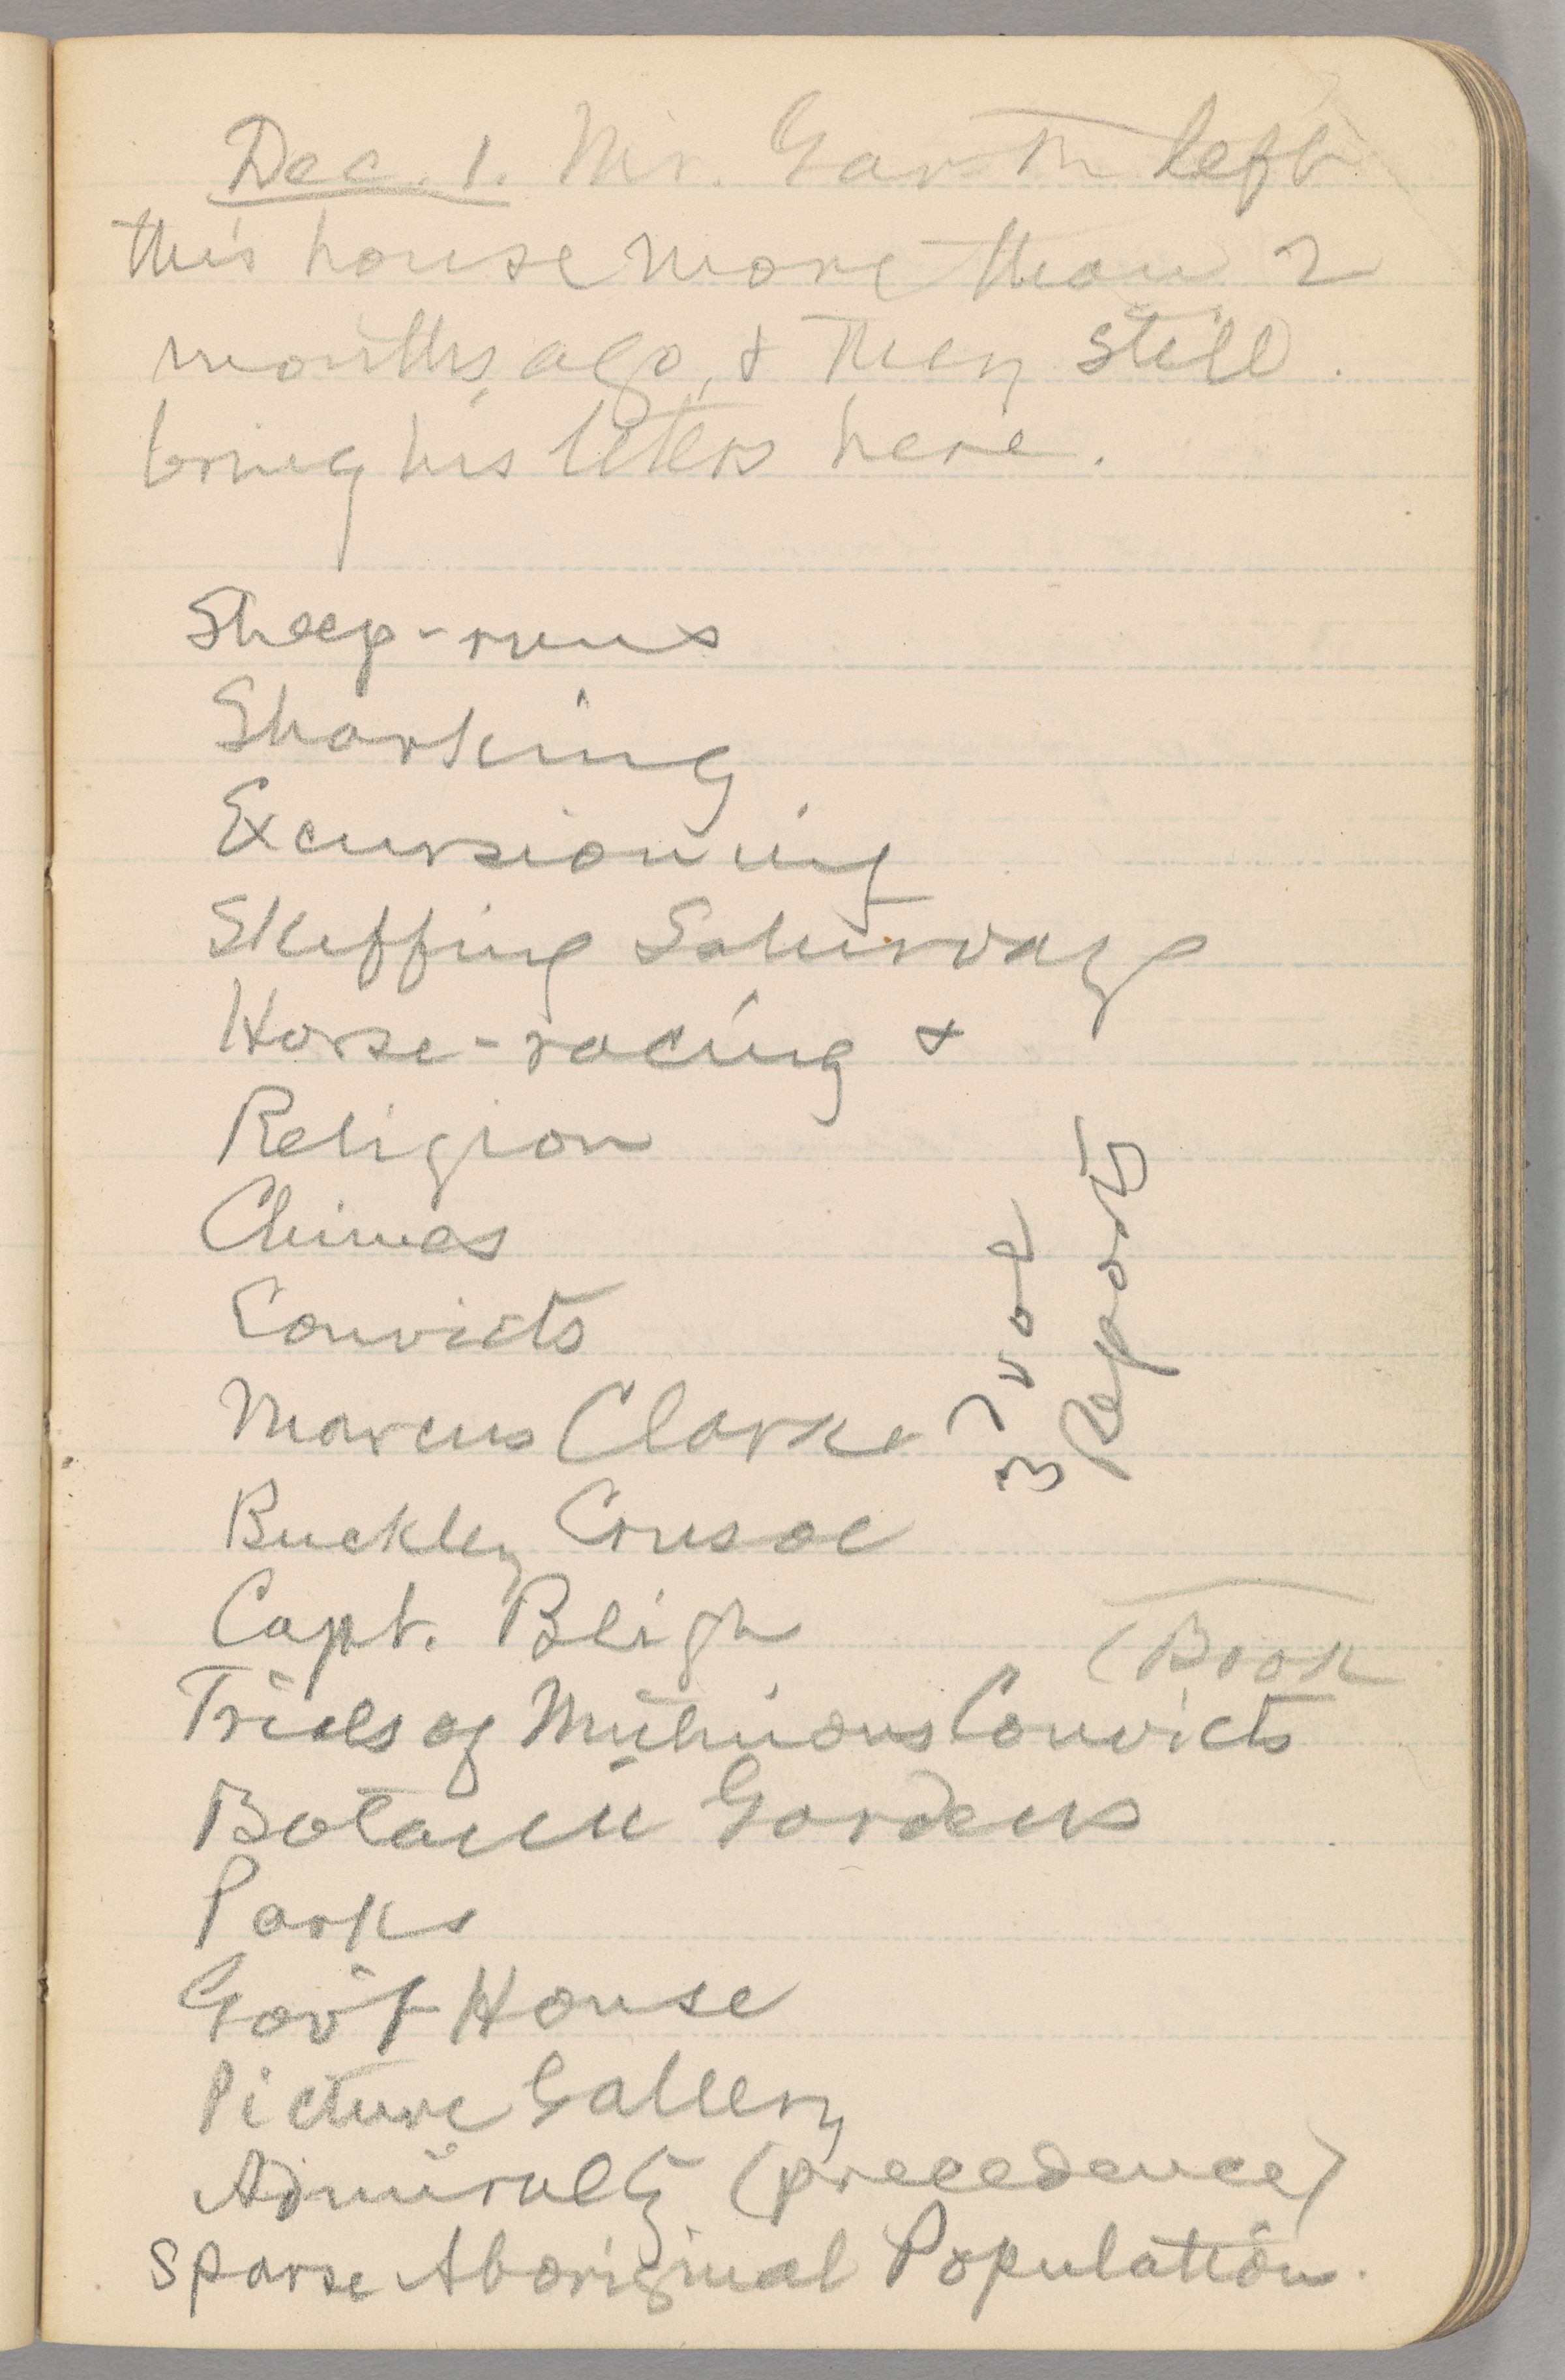 Dec. 1. Mr. Garth left
this house more than 2
months ago, & they still
bring his letters here.
Sheep-runs
Sharking
Excursioning
Skiffing Saturdays
Horse-racing &
Religion
Chimes
Convicts
Marcus Clarke
Buckley Crusoe
Capt. Bligh
(Book
Trials of Mutinous Convicts
Botanic Gardens
Parks
Gov't House
Picture Gallery
Admiralty (precedence)
Sparse Aboriginal Population.
3
Reports